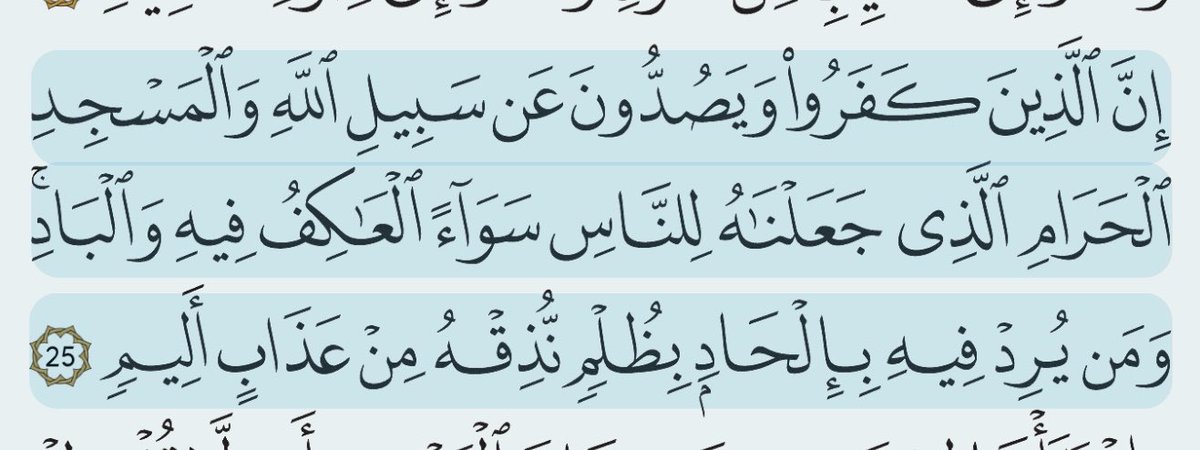 إِنَّ ٱلَّذِينَ كَفَرُوا۟ وَيَصُدُّونَ عَن سَبِيلِ ٱللَّهِ وَٱلْمَسْجِدِ
ٱلْحَرَامِ ٱلَّذِى جَعَلْنَـٰهُ لِلنَّاسِ سَوَآءً ٱلْعَـٰكِفُ فِيهِ وَٱلْبَادِ ۚ
وَمَن يُرِدْ فِيهِ بِإِلْحَادٍۭ بِظُلْمٍ نُّذِقْهُ مِنْ عَذَابٍ أَلِيمٍ 25